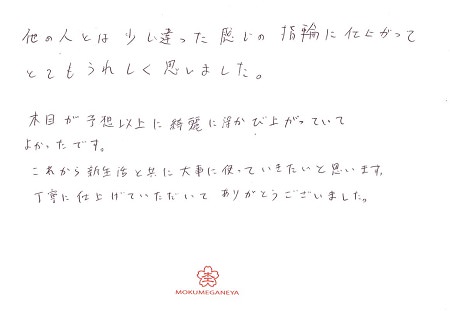 他の人とは少し違った感じの指輪に仕上がって
とてもうれしく思いました。
木目が予想以上に綺麗に浮かび上がっていて
よかったです。
これから新生活と共に大事に使っていきたいと思います。
丁寧に仕上げていただいてありがとうございました。
MOKUMEGANEYA